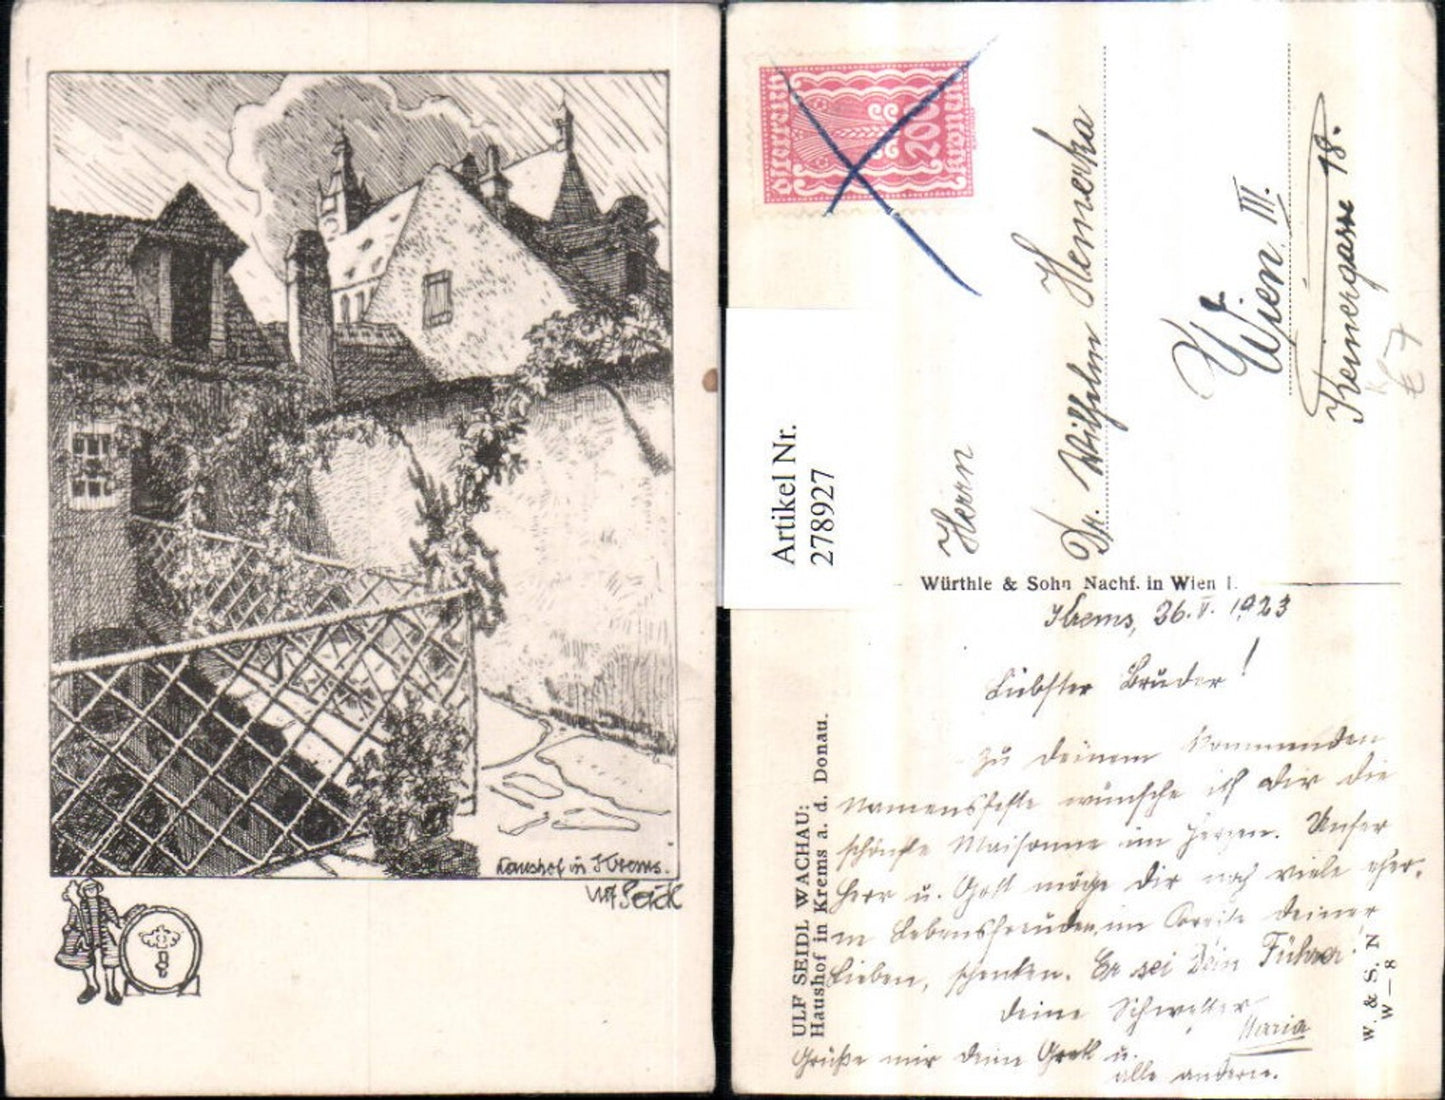 Haushof in Krems.
Ulf Seidl
Österreich
200
Kronen
Artikel Nr.
278927
Herrn
Dr. Wilhelm Hemerka
Wien III.
Kleinegasse 18.
€ 7
Würthle & Sohn Nachf. in Wien I.
ULF SEIDL WACHAU:
Haushof in Krems a. d. Donau.
W. & S. N
W—8
Krems, 26. V. 1923
Liebster Bruder!
Zu deinem kommenden
Namensfeste wünsche ich dir die
schönste Maisonne im Herzen. Unser
Herr u. Gott möge dir noch viele
Lebensfreuden, im deiner
Lieben, schenken. Er sei Dein Führer!
Deine Schwester
Maria
Grüße mir deine Gretl u.
alle andern.